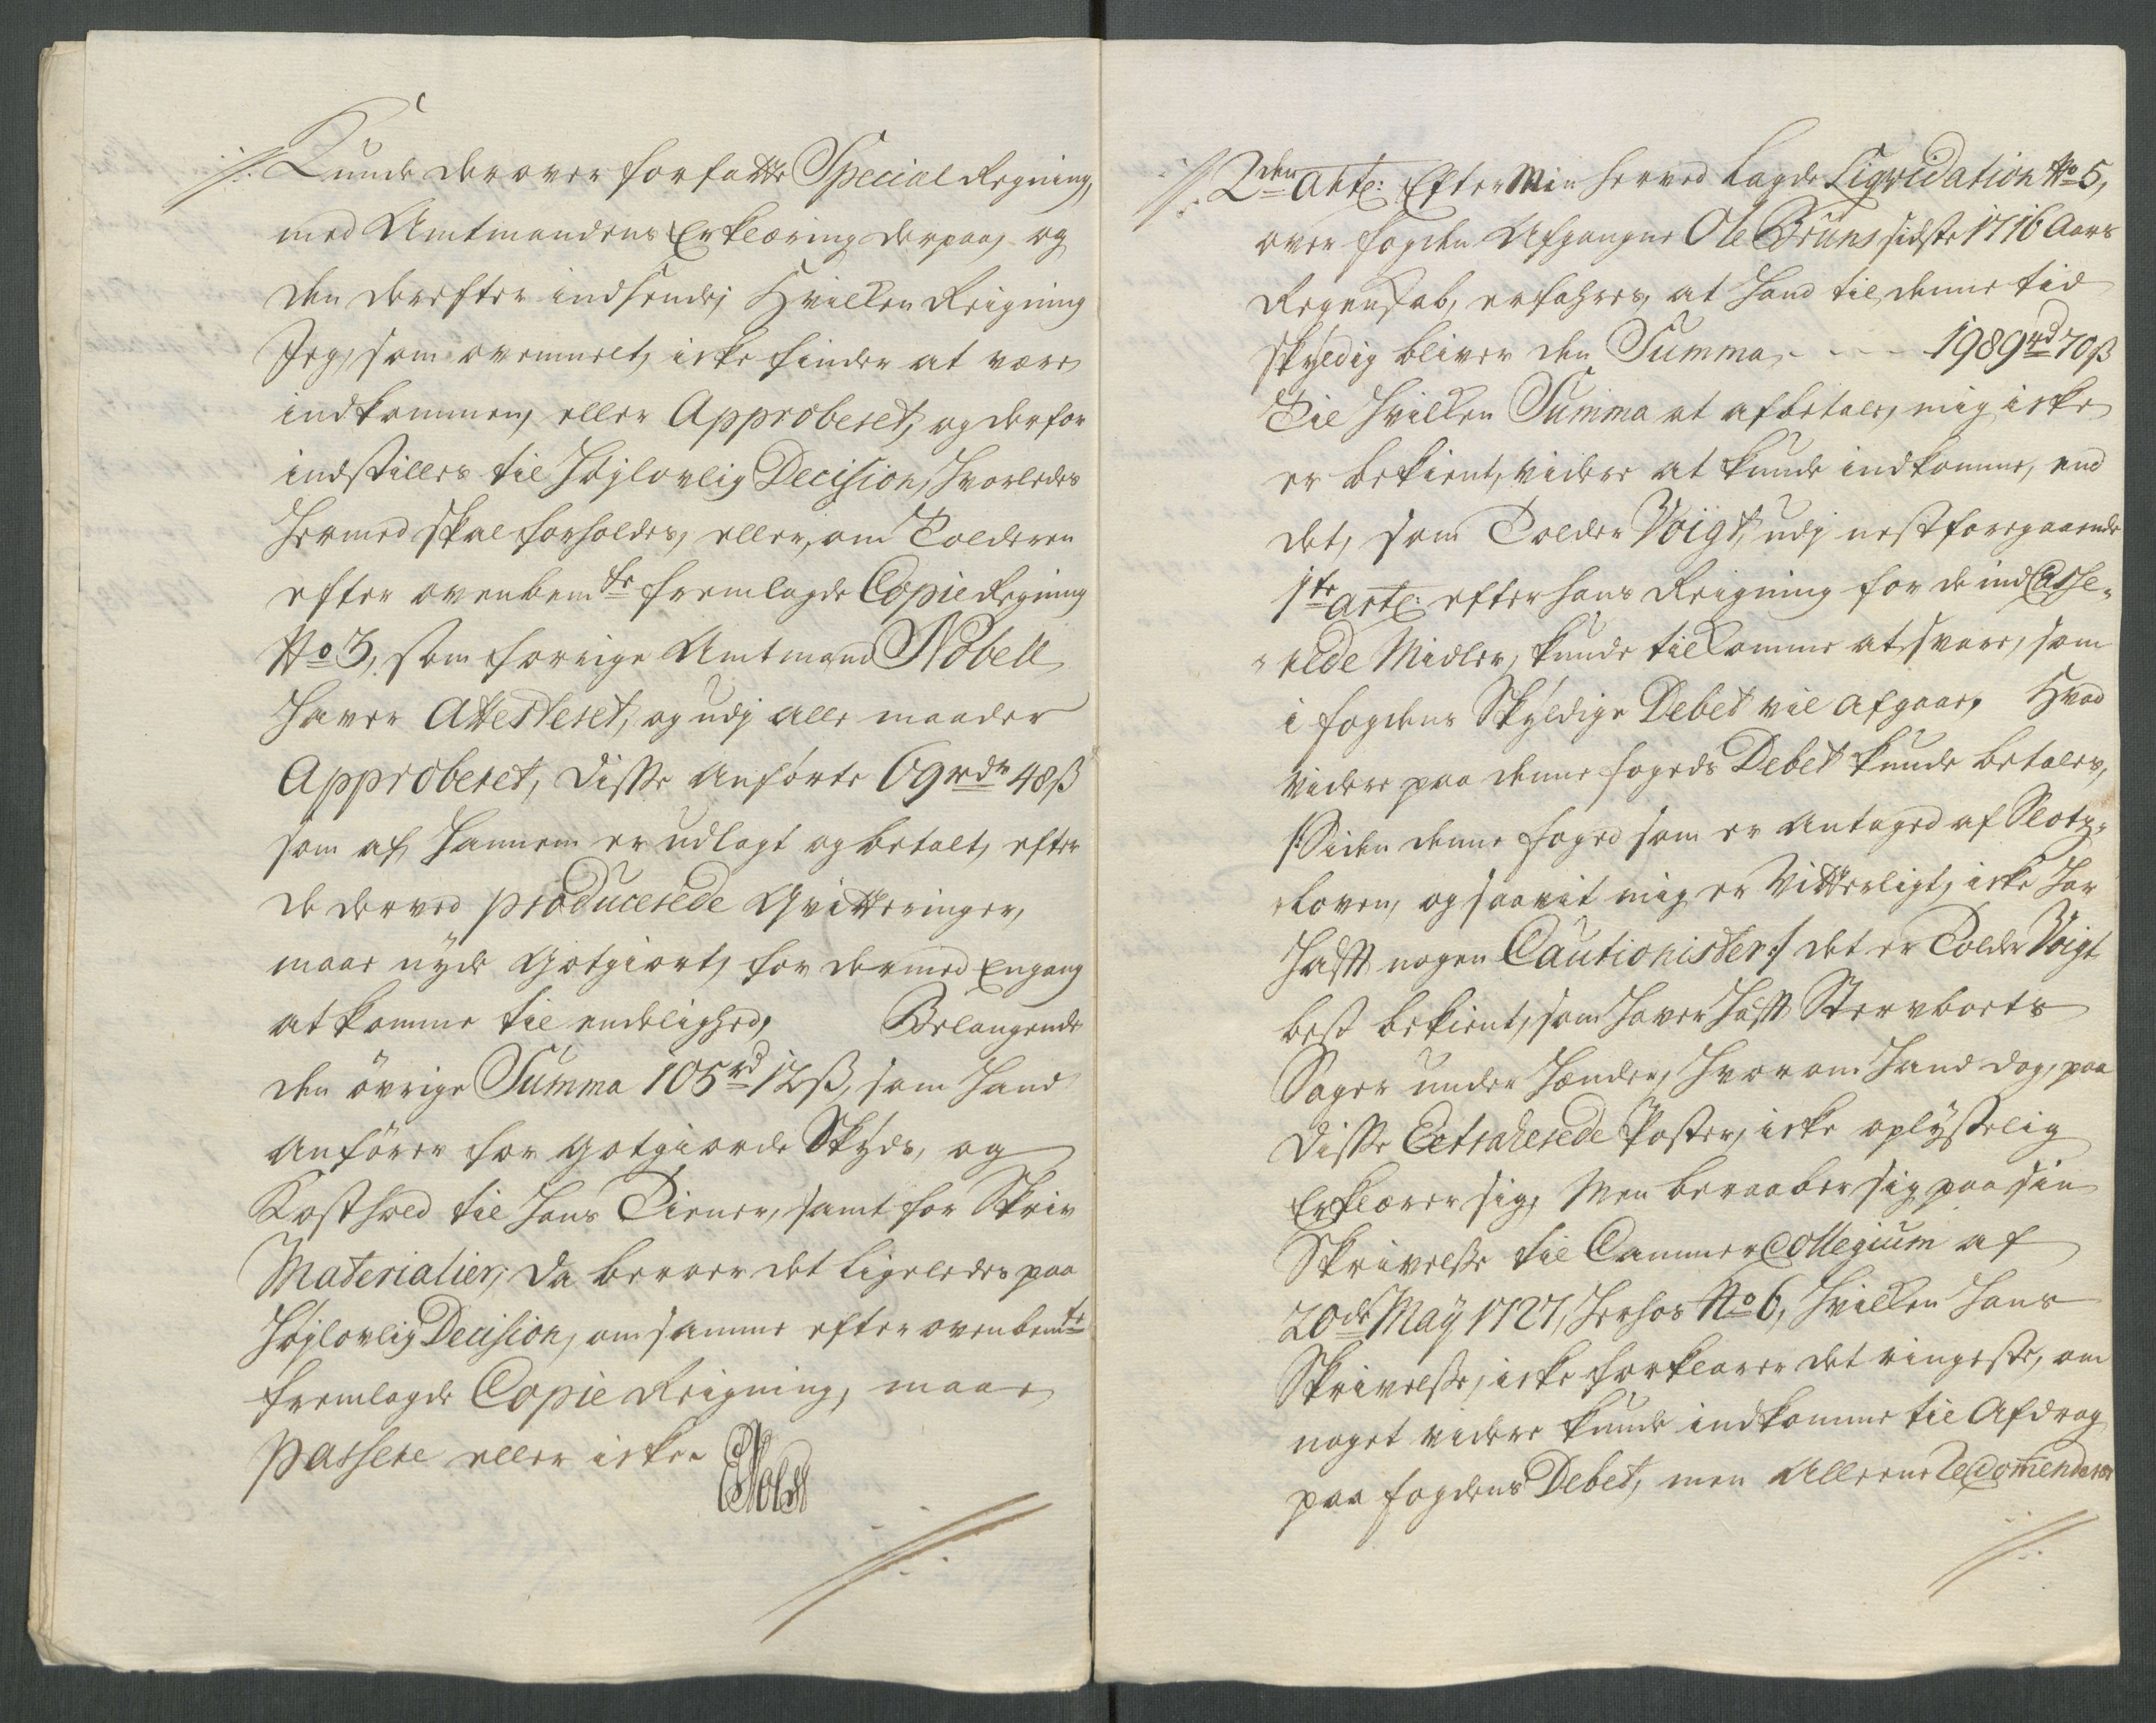 Kunde derover forfatte Special Regning,
med Amtmandens Erklæring derpaa, og
den derefter indsende; Hvilken Reigning
Jeg, som ovenmelt, icke finder at være
indkommen, eller Approberet, og derfor
indstilles til Høylovlig Decision, Hvorledes
hermed skal forholdes, eller, om Tolderen
efter ovenbemte fremlagde Copie Regning
No 3, som forrige Amtmand Nobell
haver Attesteret, og udj alle maader
Approberet, disse anførte 69 rdr 48 ß
som af hannem er udlagt og betalt, efter
de derved producerede Qvitteringer,
maae nyde Gotgiort, for dermed Engang
at komme til endelighed, Belangende
den övrige Summa 105 rd 12 ß, som Hand
Anfører for gotgiorde Skyds, og
Kosthold til hans Tiener, samt for Skriv
Materialier, da beroer det ligeledes paa
Høylovlig Decision, om samme efter ovenbemte
fremlagde Copie Reigning, maae
passere eller icke.
2den Artl: Efter Min herved lagde Liqvidation No 5,
over fogden Afgangne Ole Bruns sidste 1716 Aars
Regenskab, erfahres, at Hand til denne tid
skyldig bliver den Summa - - - 1989 rd 70 ß
Til hvilken Summa at afbetale, mig icke
er bekient, videre at kunde indkomme, end
det, som Tolder Voigt, udj nestforegaaende
1te Artl: efter hans Reigning for de indCasse-
rede Midler, kunde tilkomme at svare, som
i fogdens Skyldige Debet vil afgaae, Hvad
videre paa denne fogeds Debet kunde betales,
/: Siden denne foged som er antaged af Slotz-
loven, og saavit mig er Vitterligt, icke har
hafft nogen Cautionister :/ det er Tolder Voigt
best bekient, som haver hafft Stervboets
Sager under Hænder, hvorom Hand dog, paa
disse Extraherede Poster, icke oplyselig
Erklærer sig, Men beraaber sig paa sin
Skrivelse til Cammer Collegium af
20de May 1727, herhos No 6, Hvilken hans
Skrivelse, icke forklarer det ringeste, om
noget videre kunde indkomme til Afdrag
paa fogdens Debet, men alleene Recommenderer